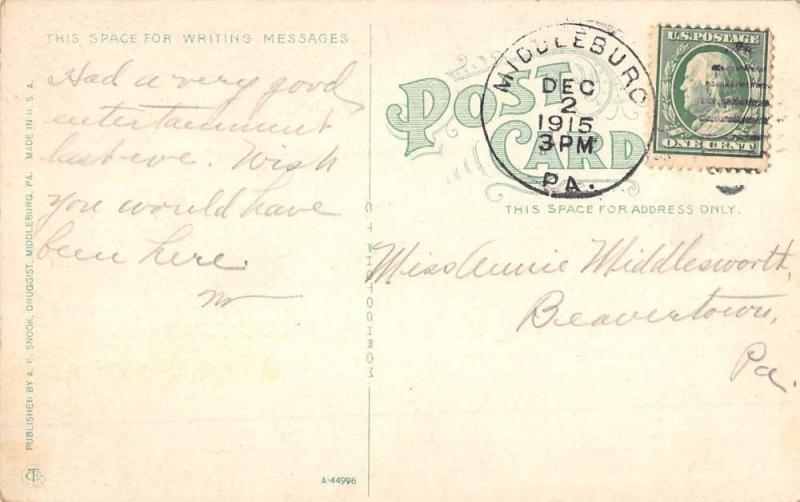 THIS SPACE FOR WRITING MESSAGES
Had a very good
entertainment
last eve. Wish
you would have
been here.
PUBLISHED BY A. E. SNOOK, DRUGGIST, MIDDLEBURG, PA. MADE IN U.S.A.
CT
A-44996
C.T. PHOTOCHROM
POST
CARD
MIDDLEBURG
DEC
2
1915
3 PM
PA.
U.S. POSTAGE
ONE CENT
THIS SPACE FOR ADDRESS ONLY.
Miss Annie Middlesworth,
Beavertown,
Pa.